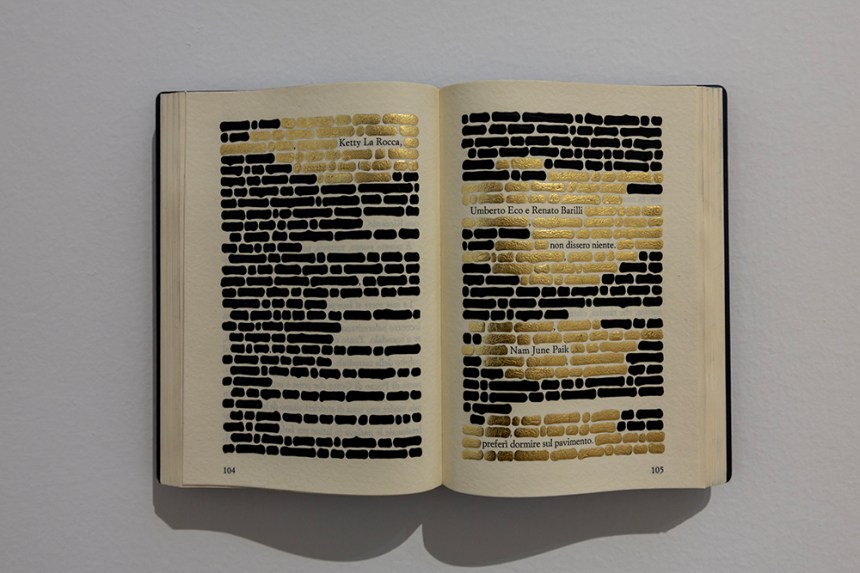 Ketty La Rocca,
104
Umberto Eco e Renato Barilli
non dissero niente.
Nam June Paik
preferì dormire sul pavimento.
105